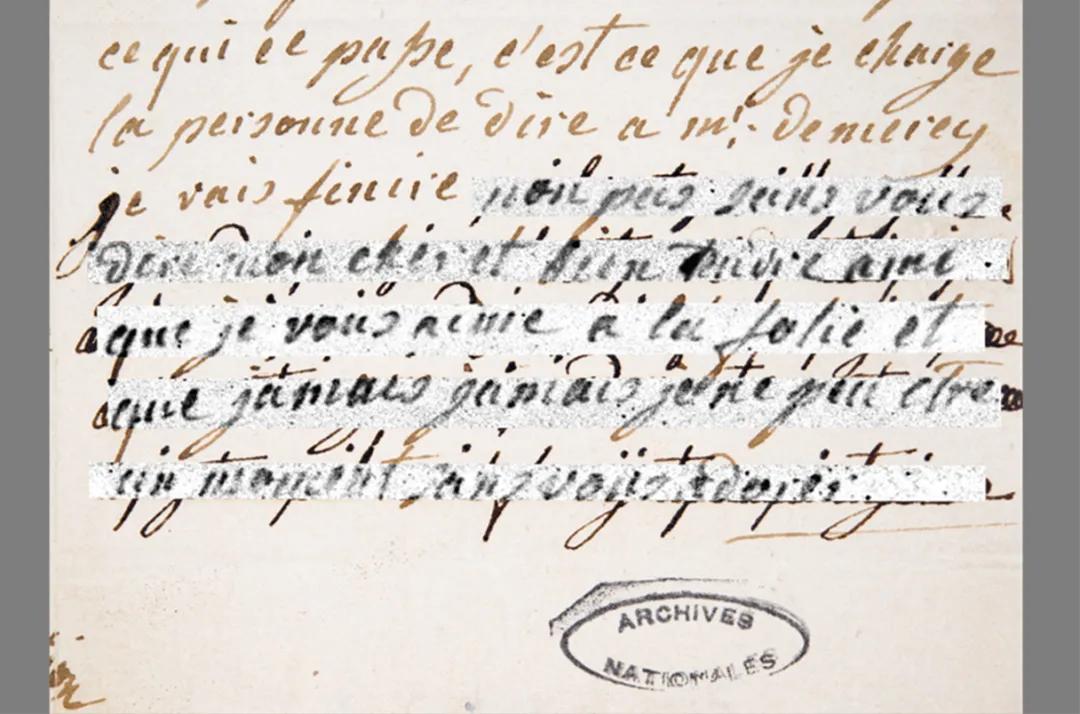 ce qui ce passe, c'est ce que je charge
la personne de dire a mr: de mercy
je vais finire non pas sans vous
dire mon cher et bien tendre ami
que je vous aime a la folie et
que jamais jamais je ne peu être
un moment sans vous adorer
ARCHIVES
NATIONALES